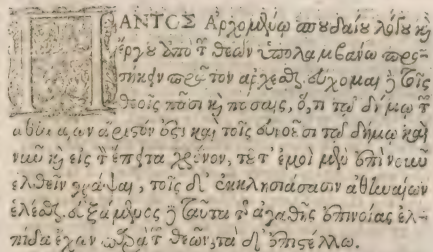 ΠΑΝΤΟΣ Ἀρχομένῳ σπουδαίου λόγου καὶ
ἔργου ἀπὸ τῶν θεῶν ὑπολαμβάνω προσ-
ήκειν πρῶτον ἄρχεσθαι. εὔχομαι δὴ τοῖς
θεοῖς πᾶσι καὶ πάσαις, ὅ,τι τῷ δήμῳ τῶν
ἀθηναίων ἄριστόν ἐστι καὶ τοῖς εὐνοοῦσι τῷ δήμῳ καὶ
νῦν καὶ εἰς τὸν ἔπειτα χρόνον, τοῦτ' ἐμοὶ μὲν ἐπὶ νοῦν
ἐλθεῖν γράψαι, τοῖς δ' ἐκκλησιάσασιν ἀθηναίων
ἑλέσθαι. εὐξάμενος δὲ ταῦτα τῆς ἀγαθῆς ἐπινοίας ἐλ-
πίδα ἔχων παρὰ τῶν θεῶν, τάδ' ἐπιστέλλω.